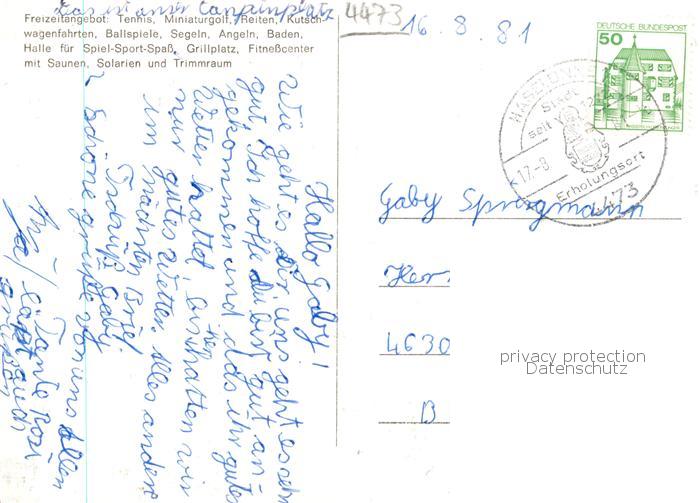 Das ist unser Campingplatz
Freizeitangebot: Tennis, Miniaturgolf, Reiten, Kutsch-
wagenfahrten, Ballspiele, Segeln, Angeln, Baden,
Halle für Spiel-Sport-Spaß, Grillplatz, Fitneßcenter
mit Saunen, Solarien und Trimmraum
4473
16. 8. 81
DEUTSCHE BUNDESPOST
50
Stadt
seit
17.-8
Erholungsort
4473
Hallo Gaby!
Wie geht es Dir uns geht es sehr
gut. Ich hoffe du bist gut an-
gekommen und das ihr gutes
Wetter hattet. bis her hatten wir
nur gutes Wetter. Alles andere
im nächsten Brief
Tschüß Gaby
Schöne grüße von uns Allen
Tante Rosi
läßt auch
grüßen
Gaby Springmann
Her.
4630
B
privacy protection
Datenschutz